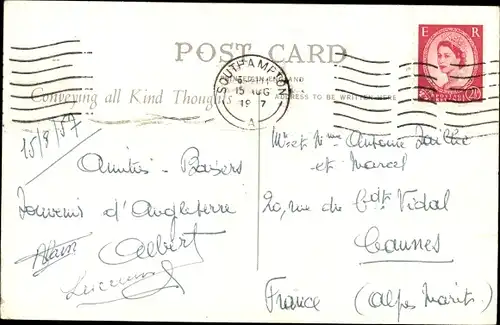 POST CARD
E R
SOUTHAMPTON
15 AUG
19 7
A
PRINTED IN ENGLAND
Conveying all Kind Thoughts
ADDRESS TO BE WRITTEN HERE
15/8/57
Amitiés - Baisers
Souvenir d'Angleterre
Alain Albert
Mr et Mme Antoine
et Marcel
20, rue du Cdt Vidal
Cannes
France (Alpes Marit.)